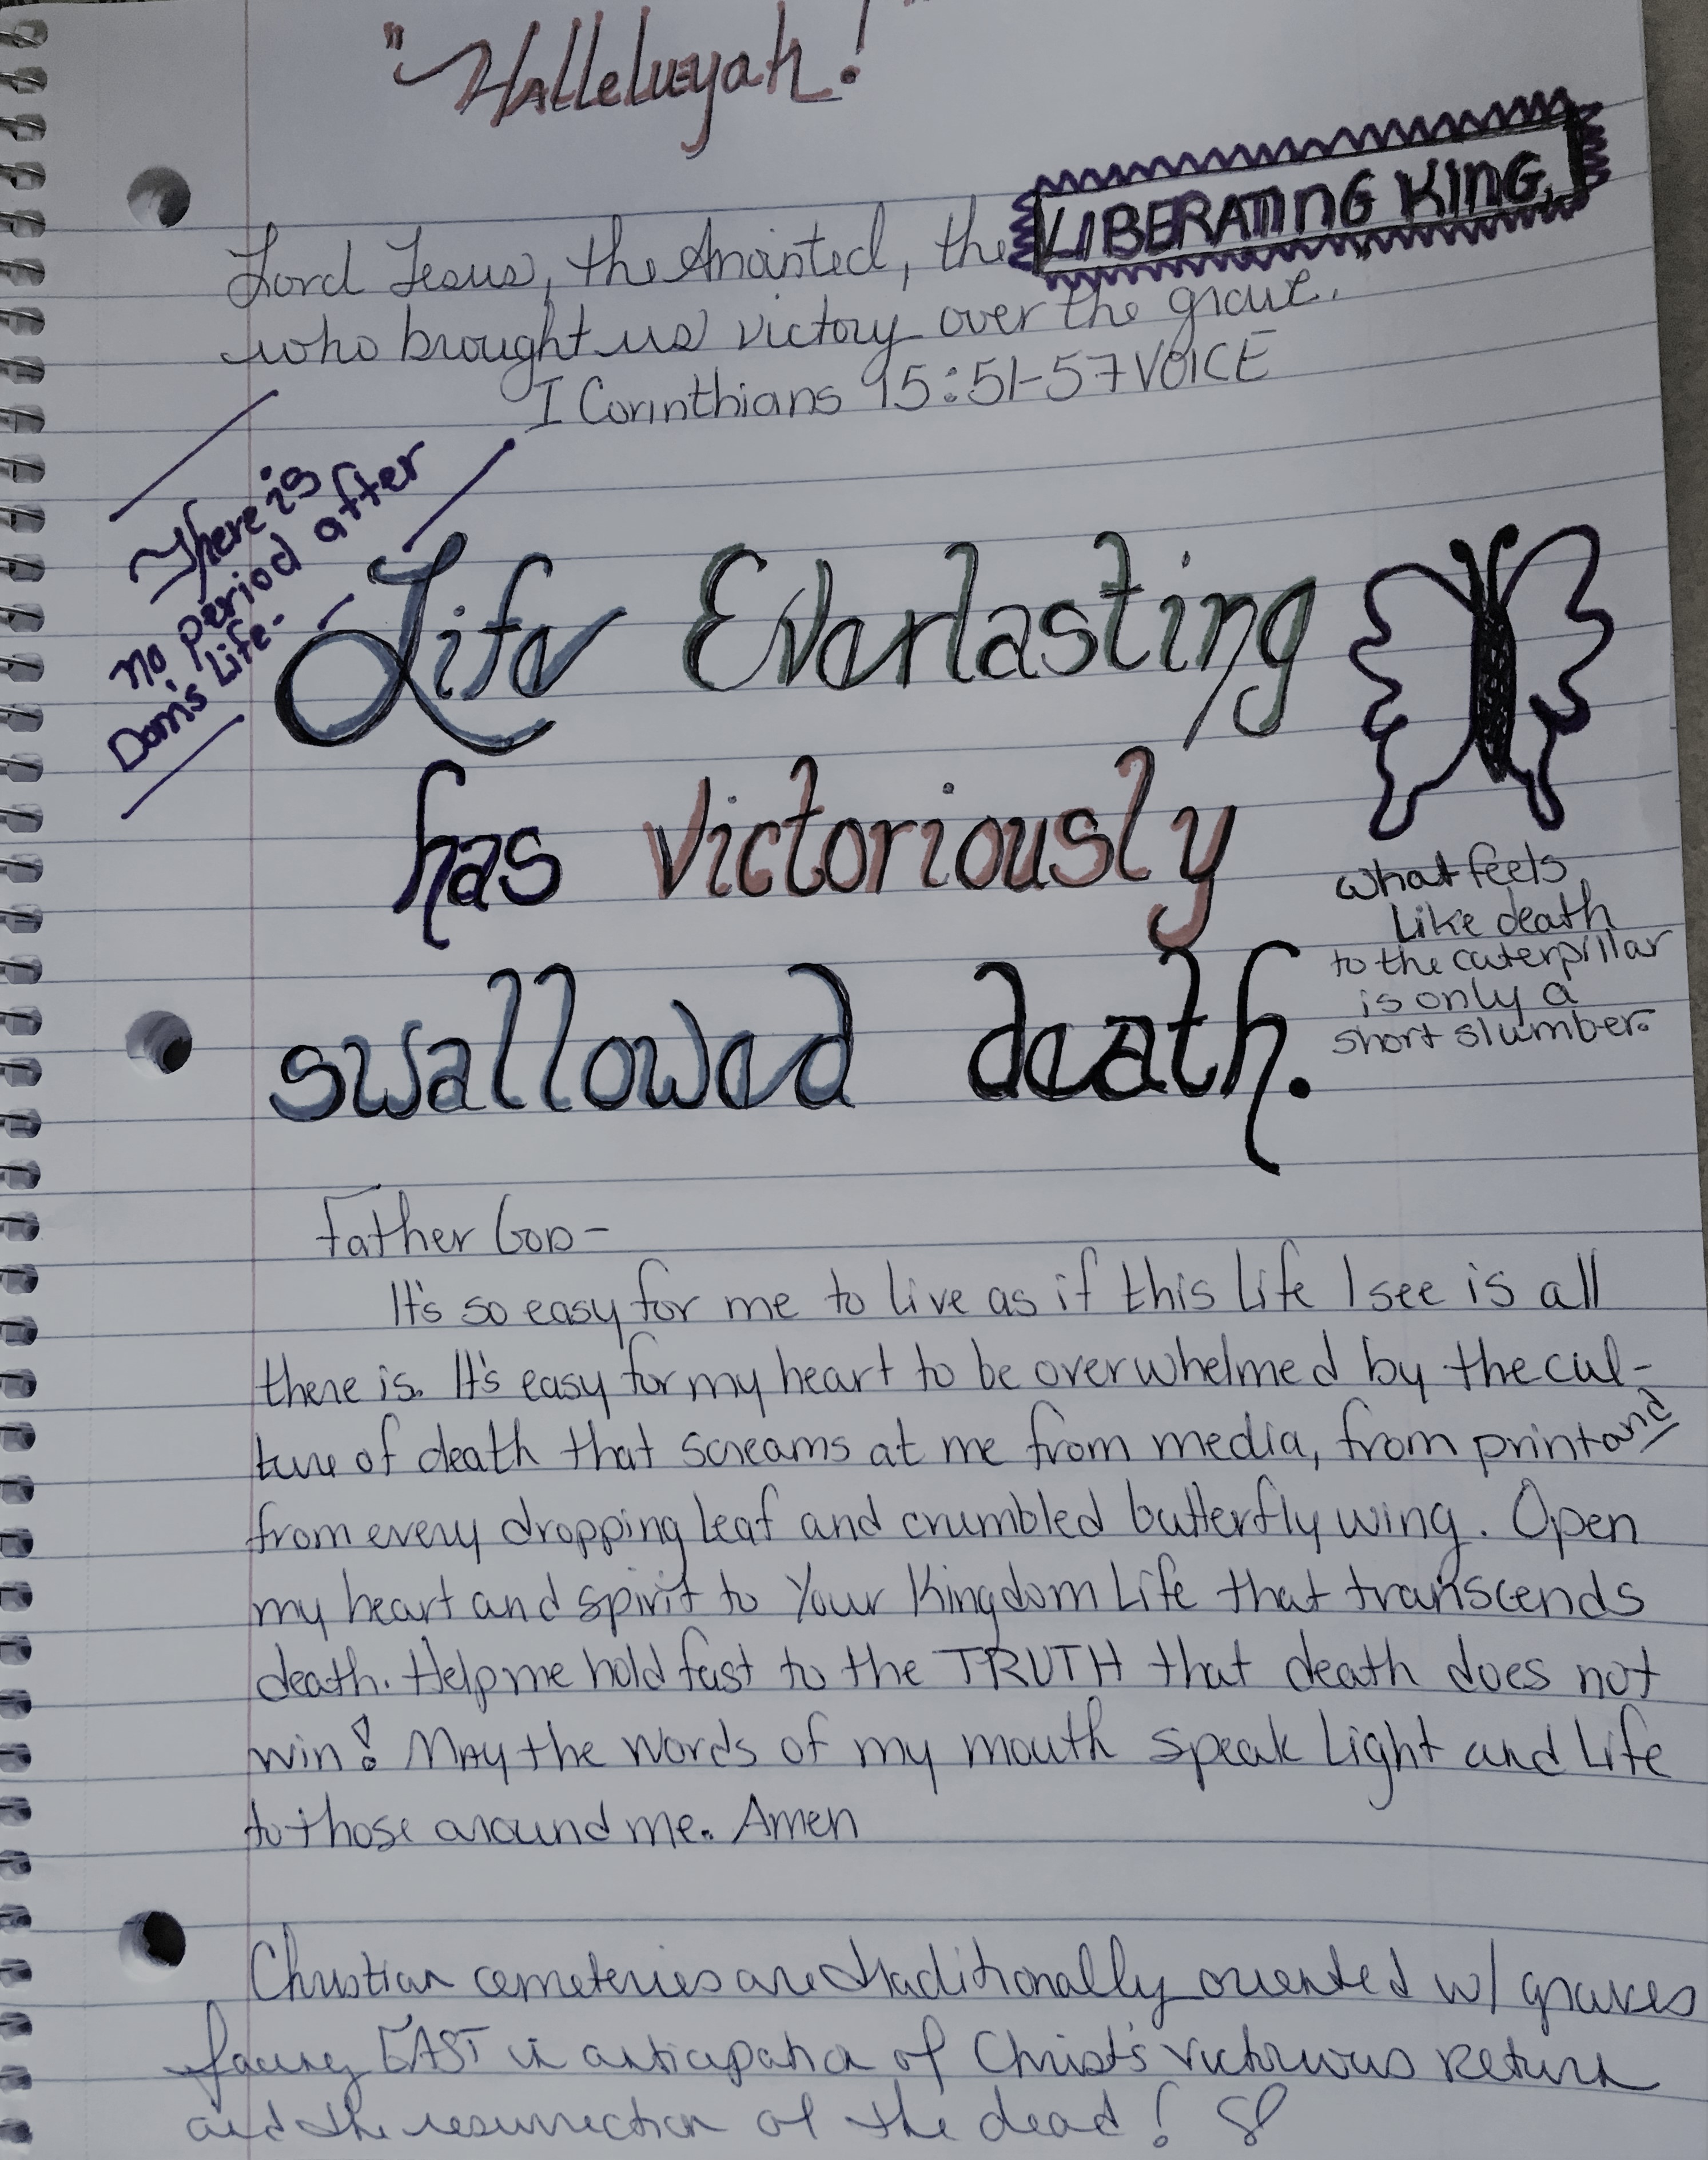 "Halleluyah!"
Lord Jesus, the Anointed, the LIBERATING KING,
who brought us victory over the grave."
I Corinthians 15:51-57 VOICE
There is
no period after
Dom's Life-
Life Everlasting
has victoriously
swallowed death.
what feels
like death
to the caterpillar
is only a
short slumber.
Father God-
It's so easy for me to live as if this life I see is all
there is. It's easy for my heart to be overwhelmed by the cul-
ture of death that screams at me from media, from print and
from every dropping leaf and crumbled butterfly wing. Open
my heart and spirit to Your Kingdom Life that transcends
death. Help me hold fast to the TRUTH that death does not
win! May the words of my mouth speak Light and Life
to those around me. Amen
Christian cemeteries are traditionally oriented w/ graves
facing EAST in anticipation of Christ's victorious return
and the resurrection of the dead!